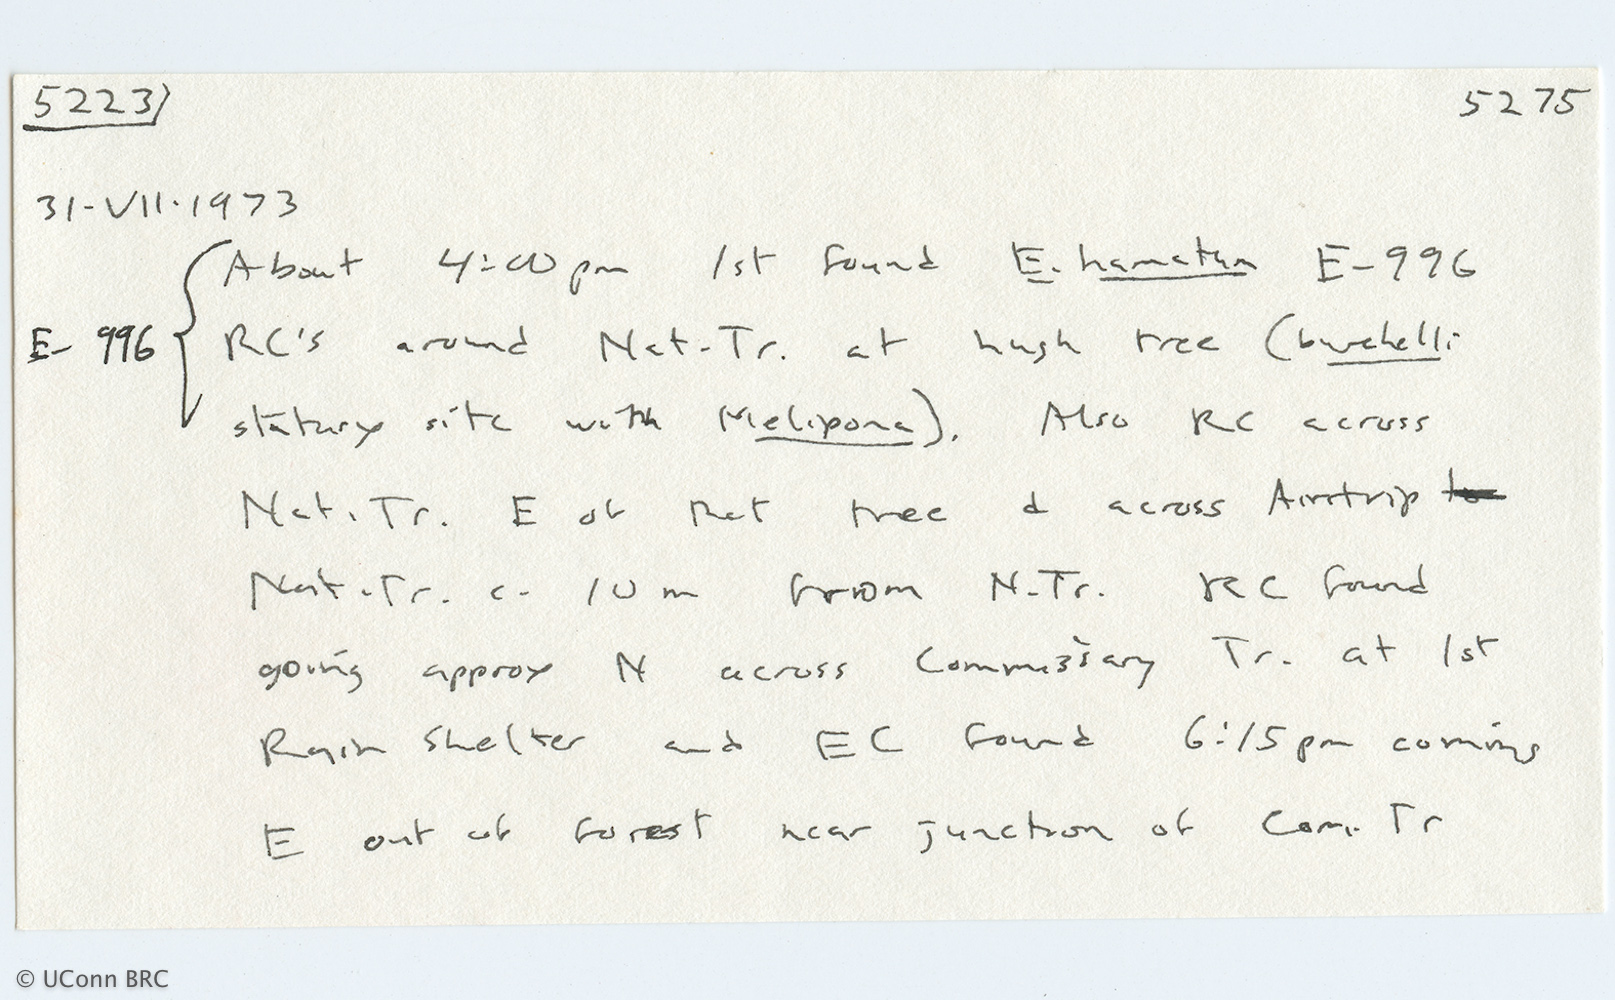 5223) 5275
31-VII-1973
About 4:00 pm 1st found E. hamatum E-996
E-996 RC's around Nat.-Tr. at hugh tree (burchelli
statary site with Melipona). Also RC across
Nat. Tr. E of that tree & across Airstrip to
Nat. Tr. c. 10 m from N.Tr. RC found
going approx N across Commissary Tr. at 1st
Rain Shelter and EC found 6:15 pm coming
E out of forest near junction of Com. Tr
© UConn BRC